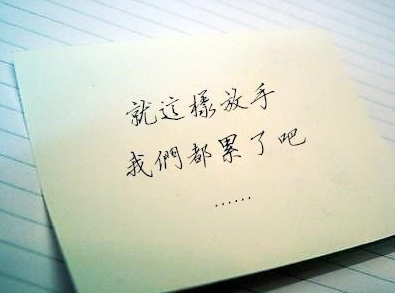 就這樣放手
我們都累了吧
……